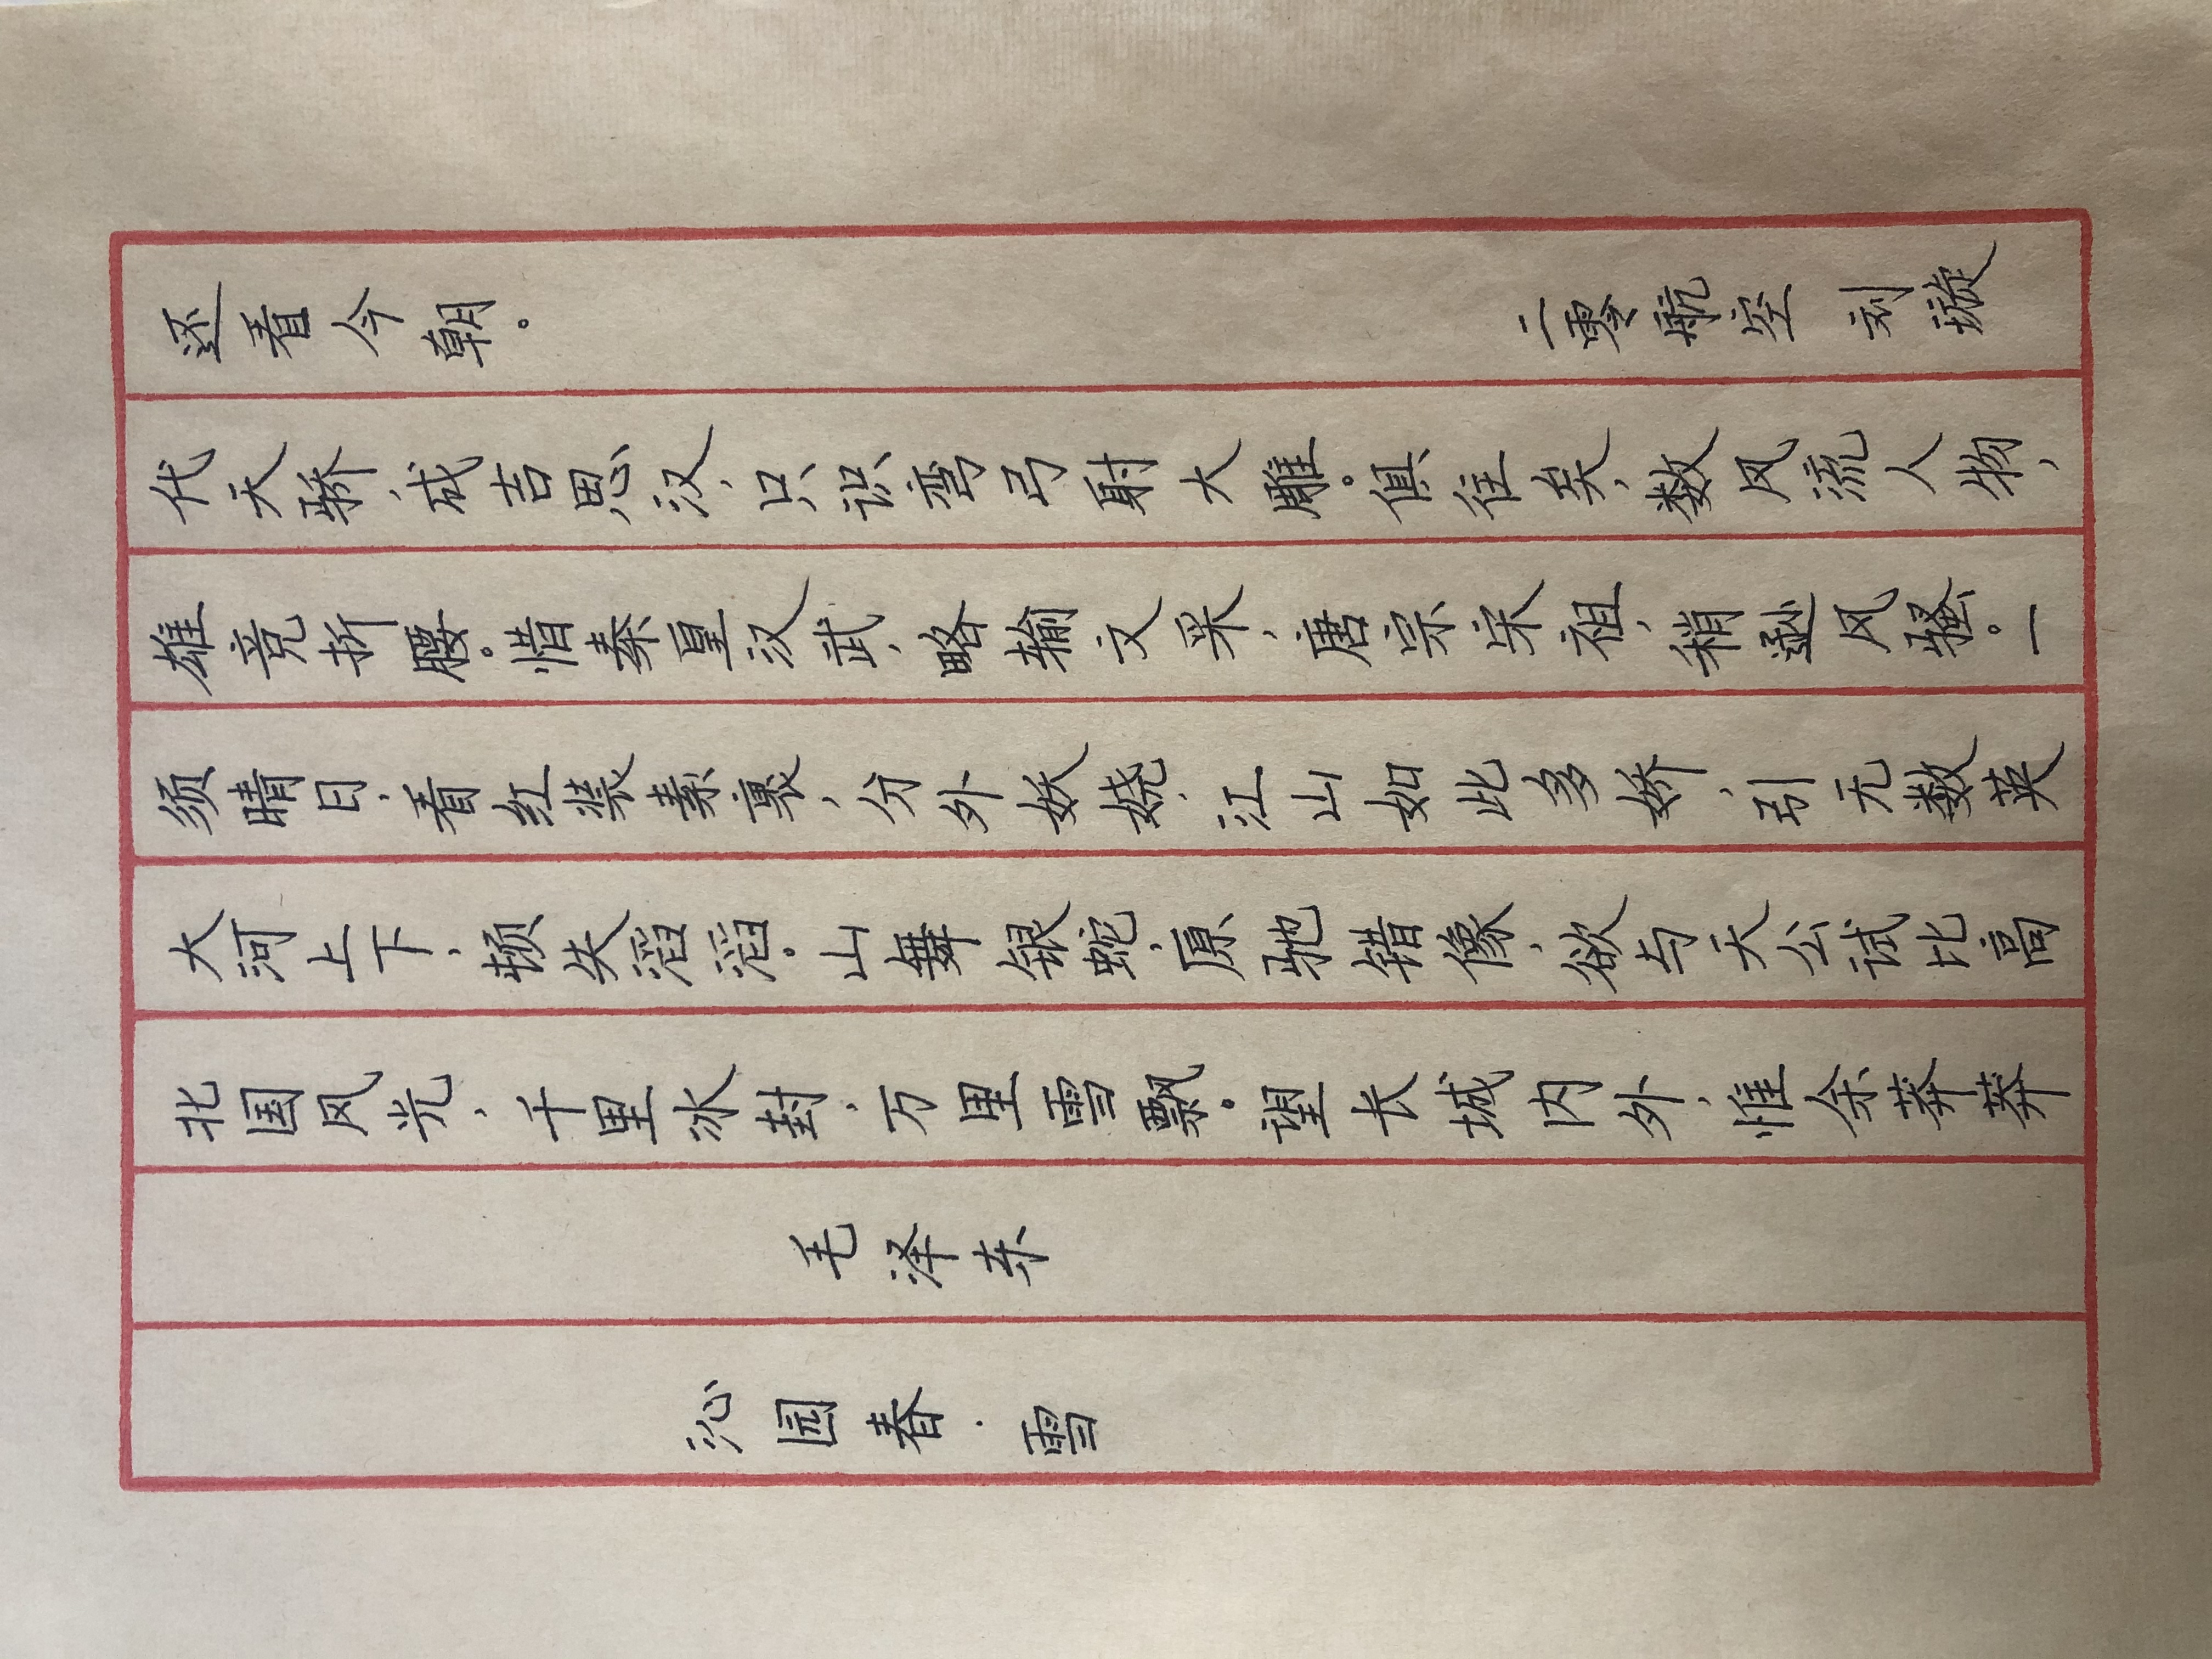 沁园春·雪
毛泽东
北国风光，千里冰封，万里雪飘。望长城内外，惟余莽莽
大河上下，顿失滔滔。山舞银蛇，原驰错像，欲与天公试比高
须晴日，看红装素裹，分外妖娆，江山如此多娇，引无数英
雄竞折腰。惜秦皇汉武，略输文采，唐宗宋祖，稍逊风骚。一
代天骄，成吉思汉，只识弯弓射大雕。俱往矣，数风流人物，
还看今朝。
二零航空 刘璇